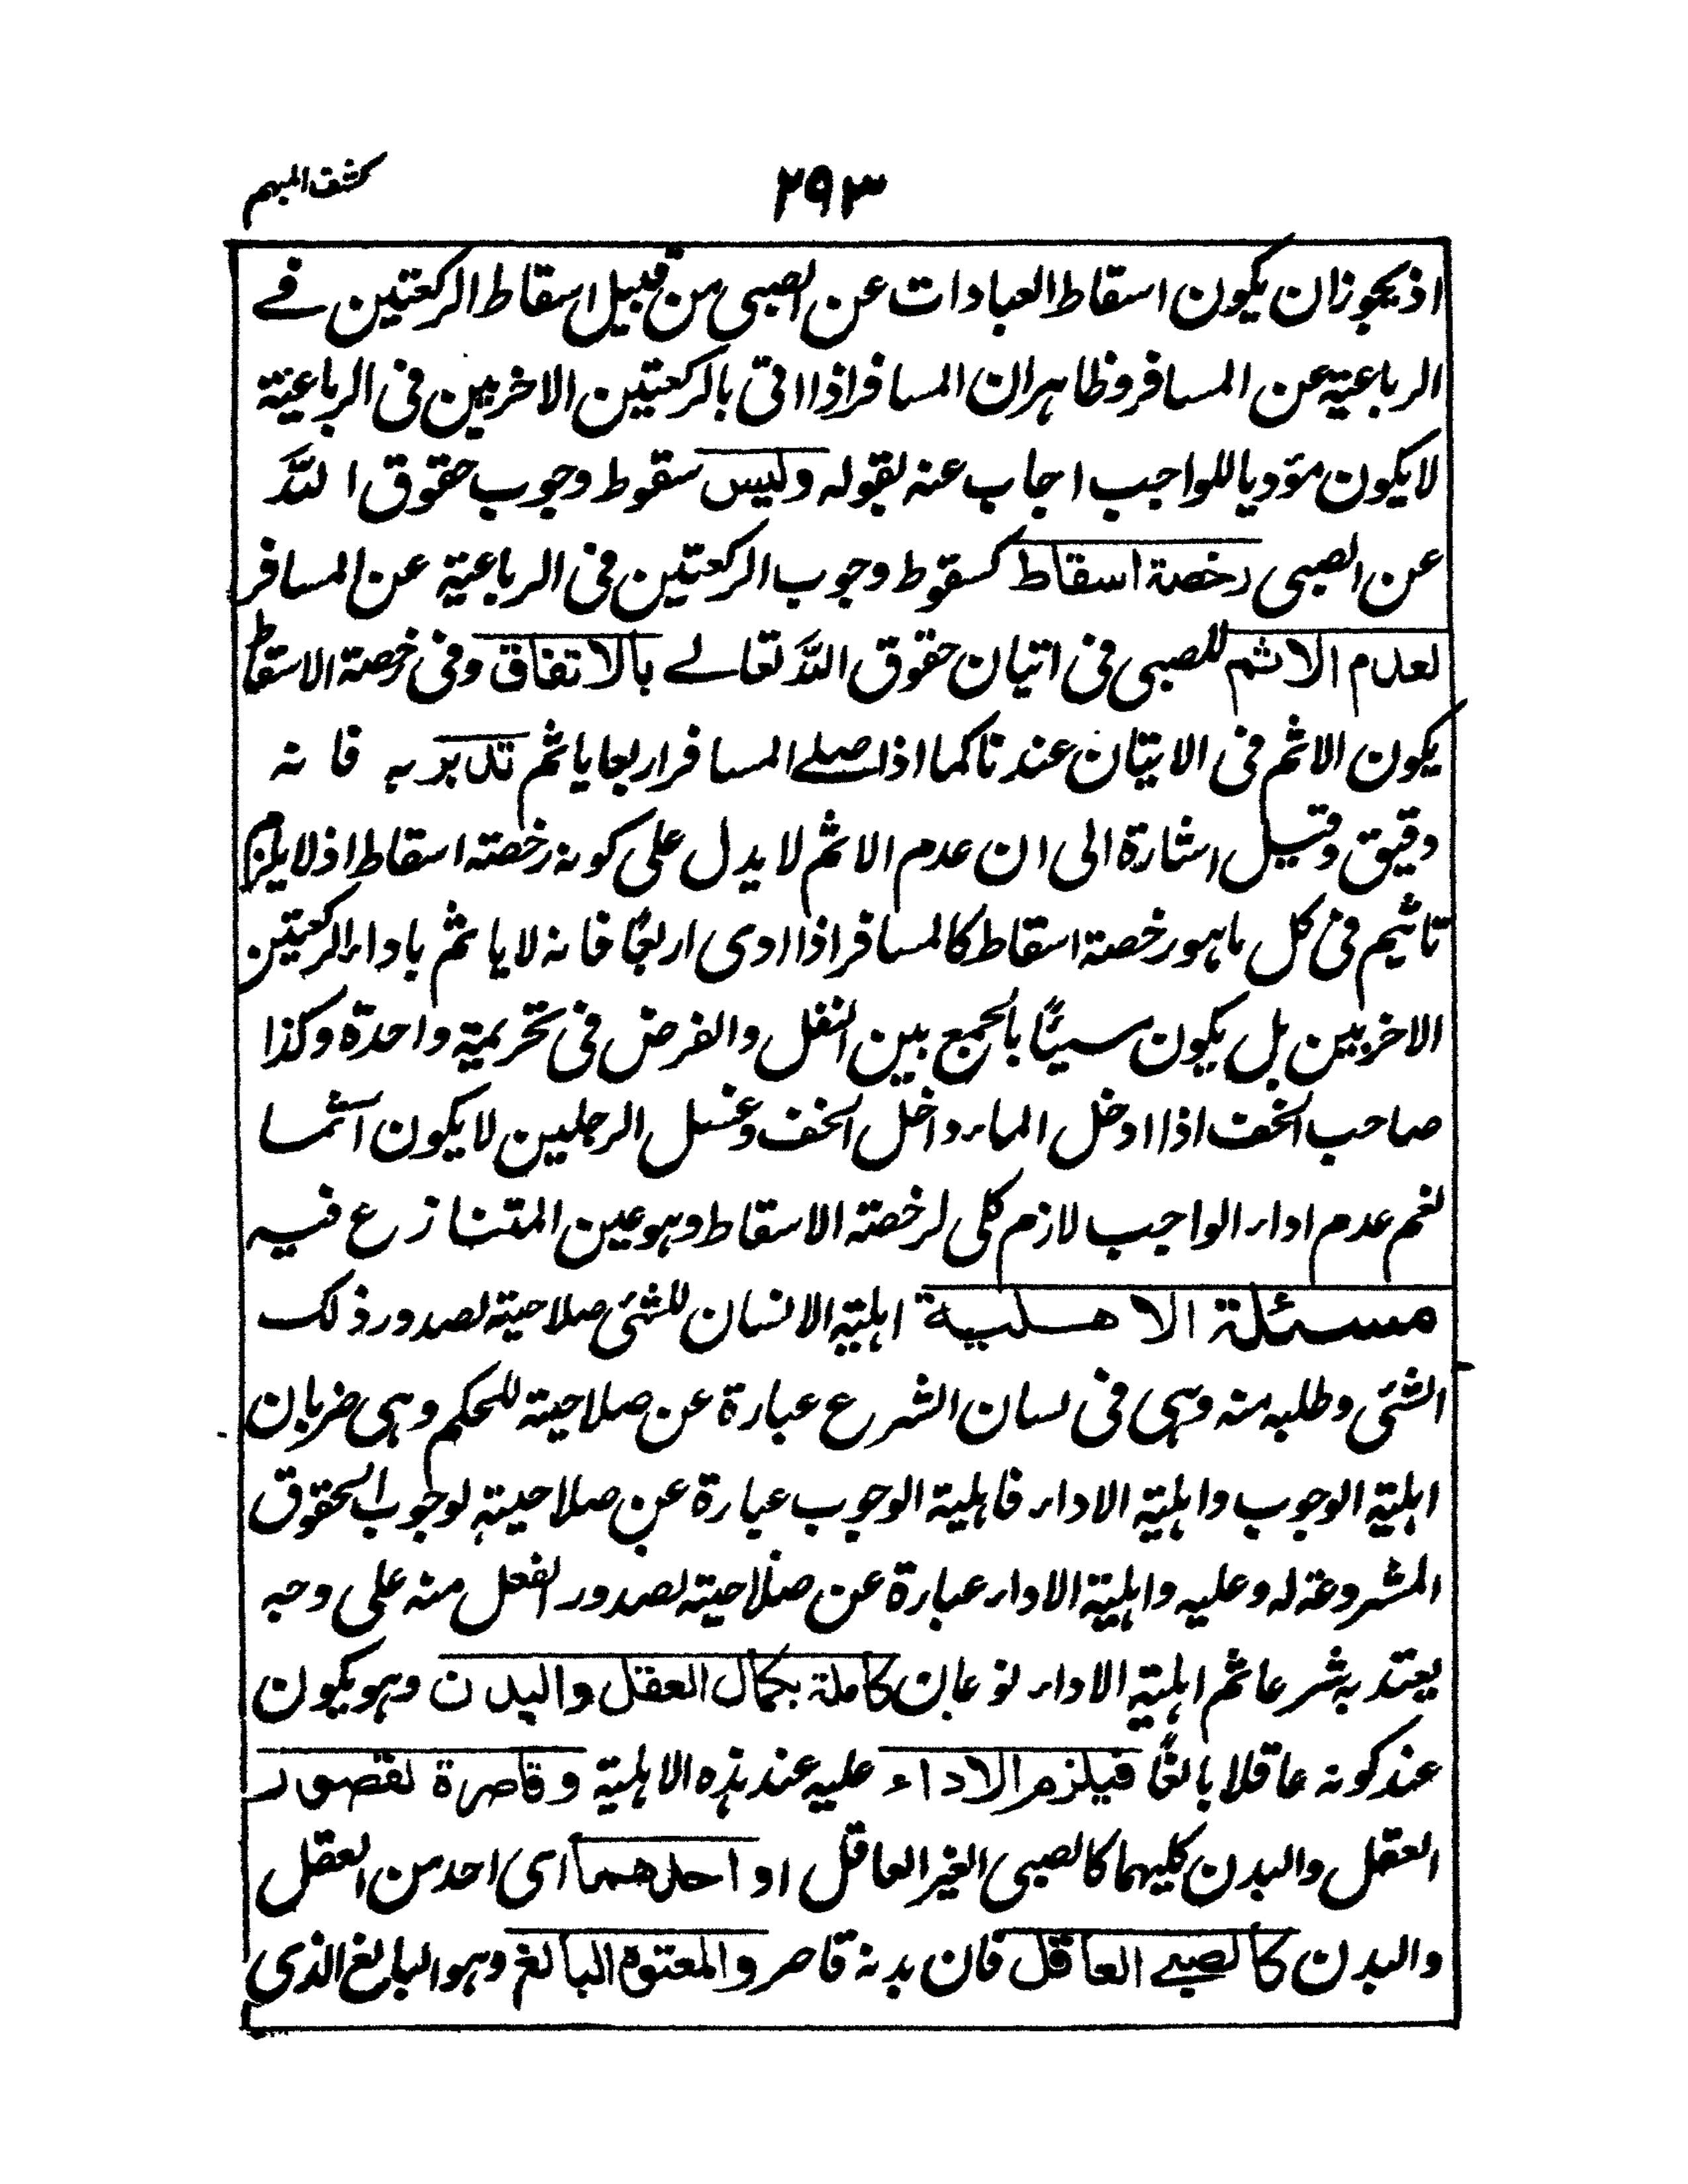 كشف المبهم
۲۹۳
اذ يجوز ان يكون اسقاط العبادات عن الصبى من قبيل اسقاط الركعتين فے
الرباعية عن المسافر وظاهر ان المسافر اذا اتى بالركعتين الاخريين فى الرباعية
لا يكون مؤديا للواجب اجاب عنه بقوله وليس سقوط وجوب حقوق اللہ
عن الصبى رخصة اسقاط كسقوط وجوب الركعتين فى الرباعية عن المسافر
لعدم الاثم للصبى فى اتيان حقوق اللہ تعالے بالاتفاق وفى رخصة الاسقاط
يكون الاثم فى الاتيان عندنا كما اذا صلے المسافر اربعا ياثم تدبر به فانه
دقيق وقيل اشارة الى ان عدم الاثم لا يدل على كونه رخصة اسقاط اذ لا يلزم
تاثيم فى كل ما هو رخصة اسقاط كالمسافر اذا ادى اربعًا فانه لا ياثم باداء الركعتين
الاخريين بل يكون مسيئًا بالجمع بين النفل والفرض فى تحريمة واحدة وكذا
صاحب الخف اذا ادخل الماء داخل الخف وغسل الرجلين لا يكون آثما
نعم عدم اداء الواجب لازم كلى لرخصة الاسقاط وهو عين المتنازع فيه
مسئلة الاهلية اهلية الانسان للشئ صلاحيته لصدور ذلك
الشئ وطلبه منه وهى فى لسان الشرع عبارة عن صلاحيته للحكم وهى ضربان
اهلية الوجوب واهلية الاداء فاهلية الوجوب عبارة عن صلاحيته لوجوب الحقوق
المشروعة له وعليه واهلية الاداء عبارة عن صلاحيته لصدور الفعل منه على وجه
يعتد به شرعا ثم اهلية الاداء نوعان كاملة بكمال العقل والبدن وهو يكون
عند كونه عاقلا بالغًا فيلزم الاداء عليه عند هذه الاهلية وقاصرة لقصور
العقل والبدن كليهما كالصبى الغير العاقل او احدهما اى احد من العقل
والبدن كالصبے العاقل فان بدنه قاصر والمعتوه البالغ وهو البالغ الذى